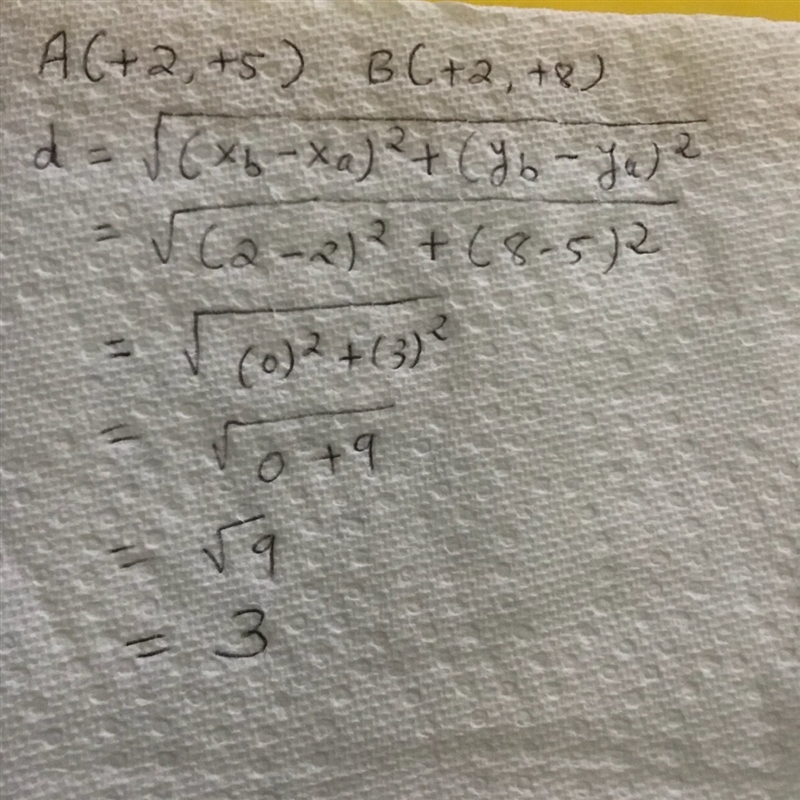 A(+2, +5) B(+2, +8)
d = √(x_b - x_a)² + (y_b - y_a)²
= √(2 - 2)² + (8 - 5)²
= √(0)² + (3)²
= √0 + 9
= √9
= 3